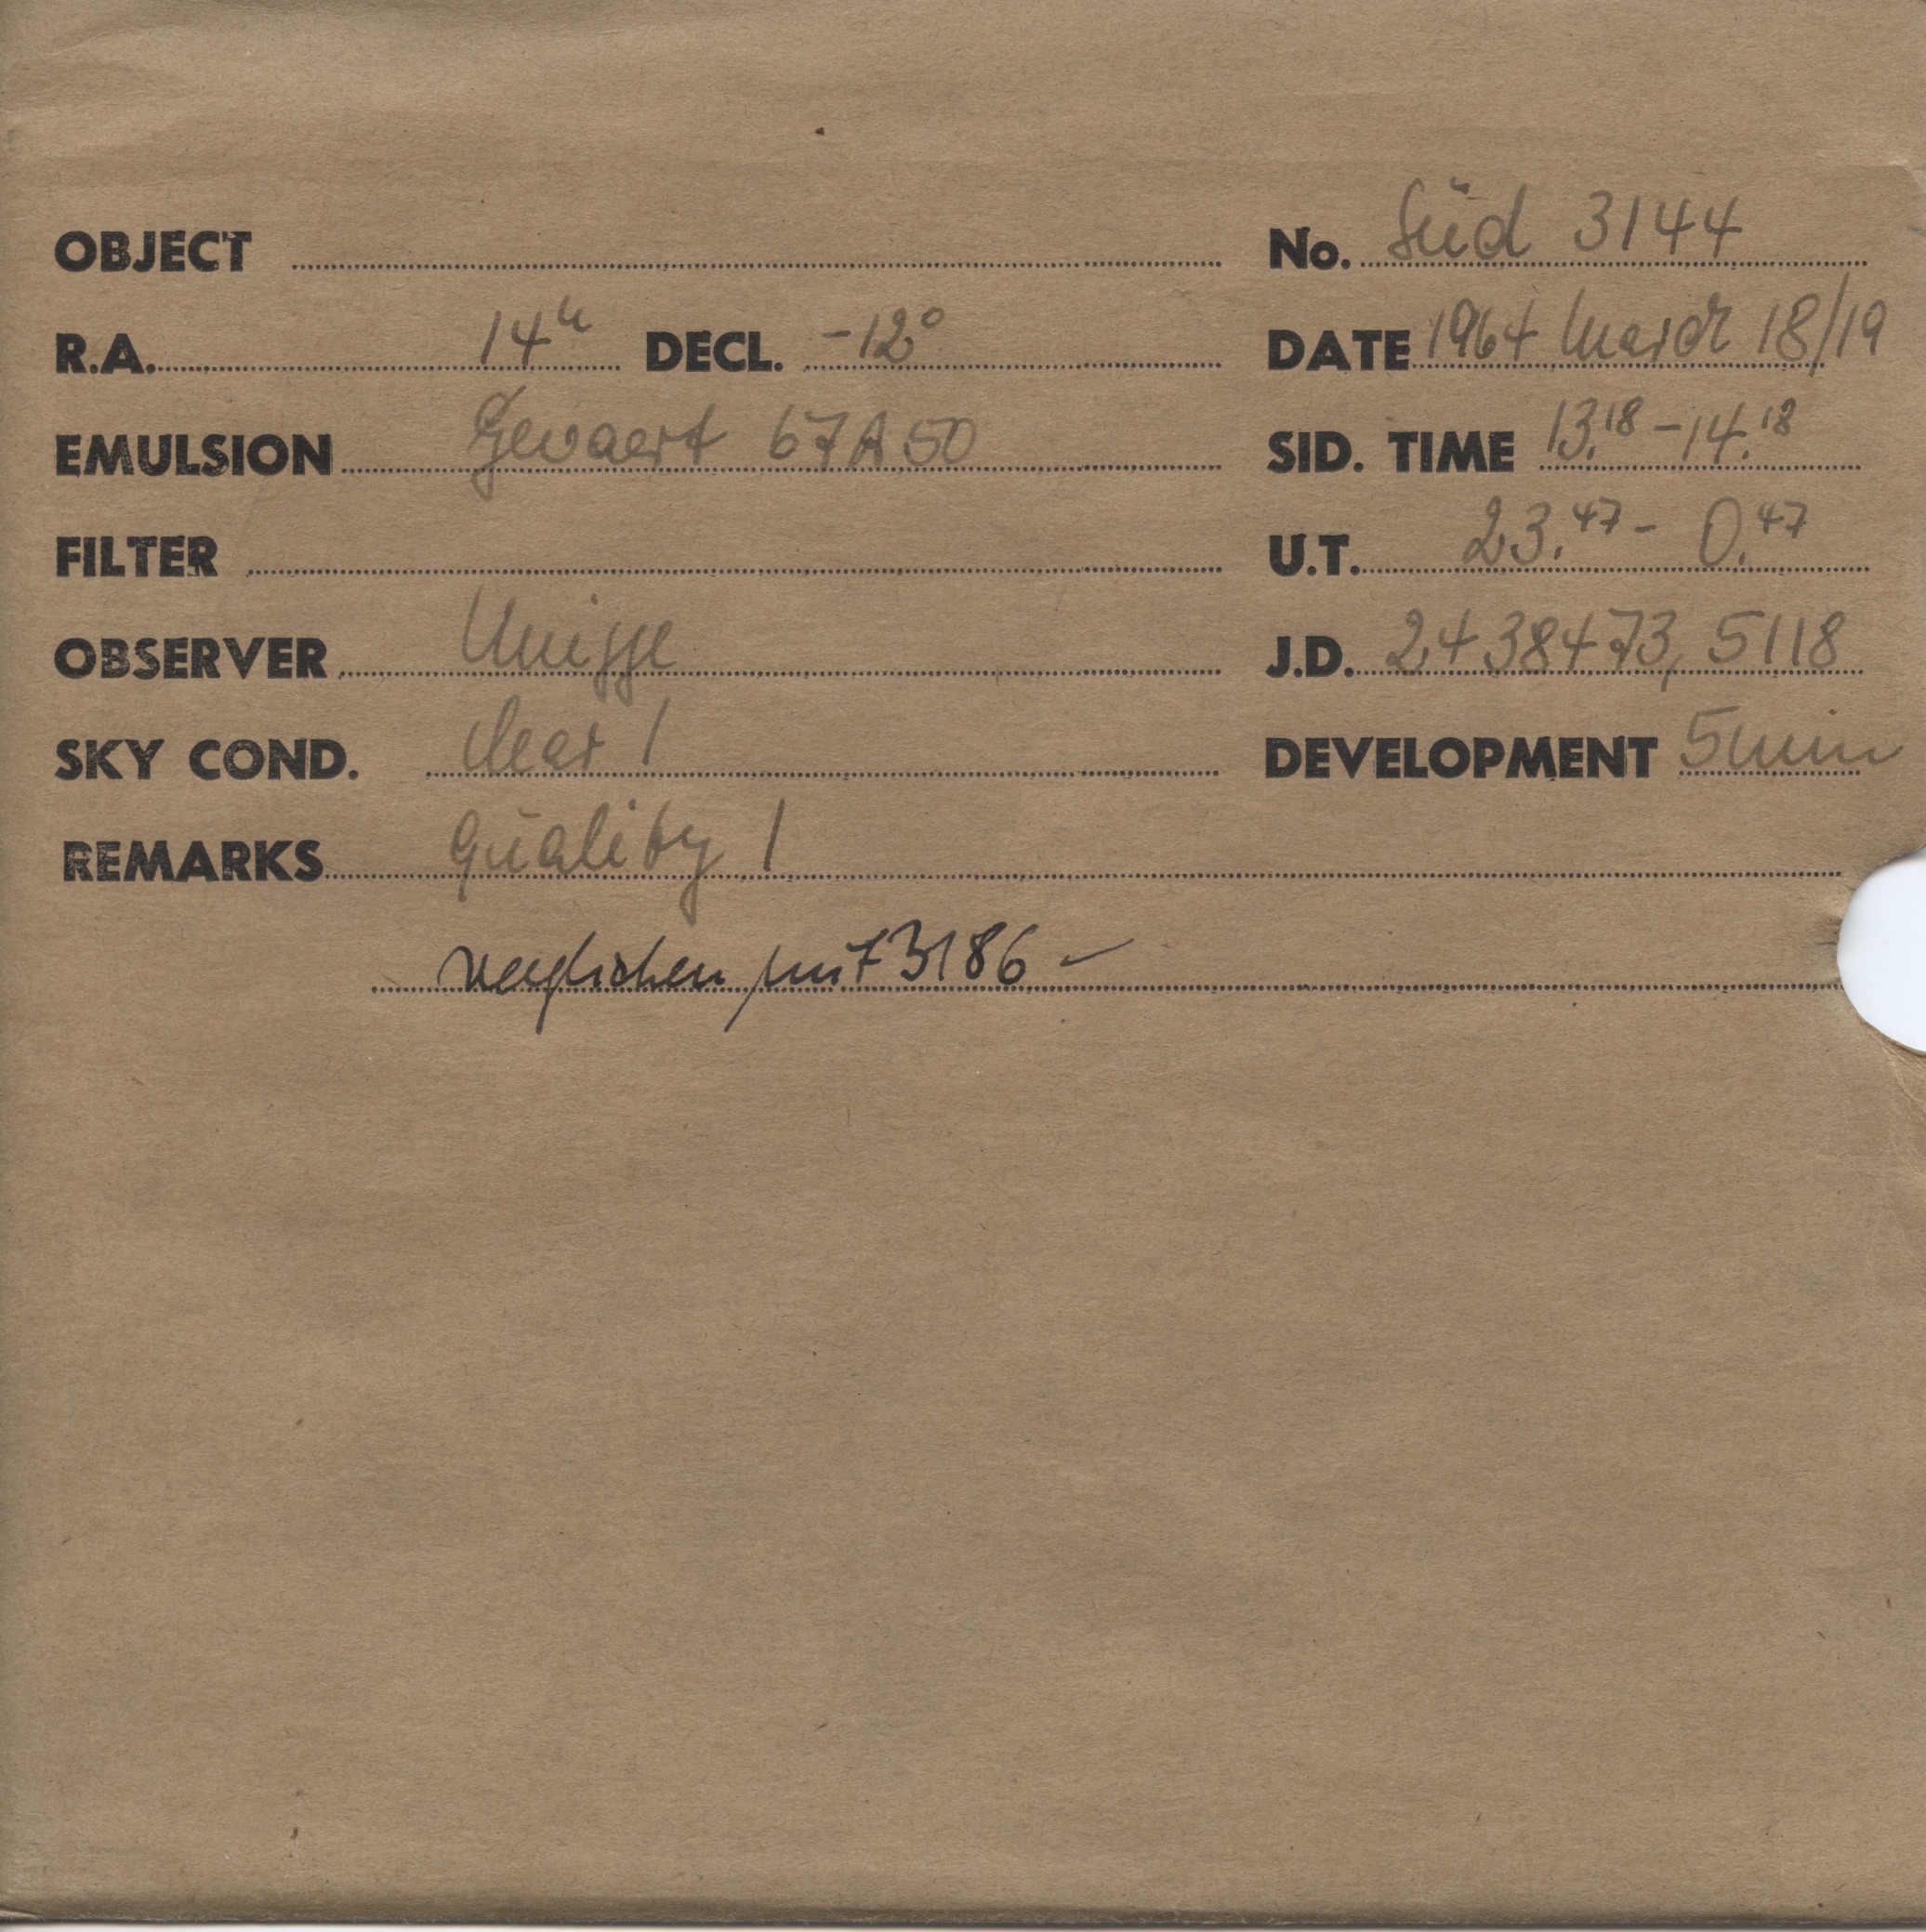 OBJECT No. Süd 3144
R.A. 14h DECL. -12° DATE 1964 March 18/19
EMULSION Gevaert 67A50 SID. TIME 13.18 - 14.18
FILTER U.T. 23.47 - 0.47
OBSERVER J.D. 2438473,5118
SKY COND. clear 1 DEVELOPMENT 5min
REMARKS Quality 1
verglichen mit 3186 -